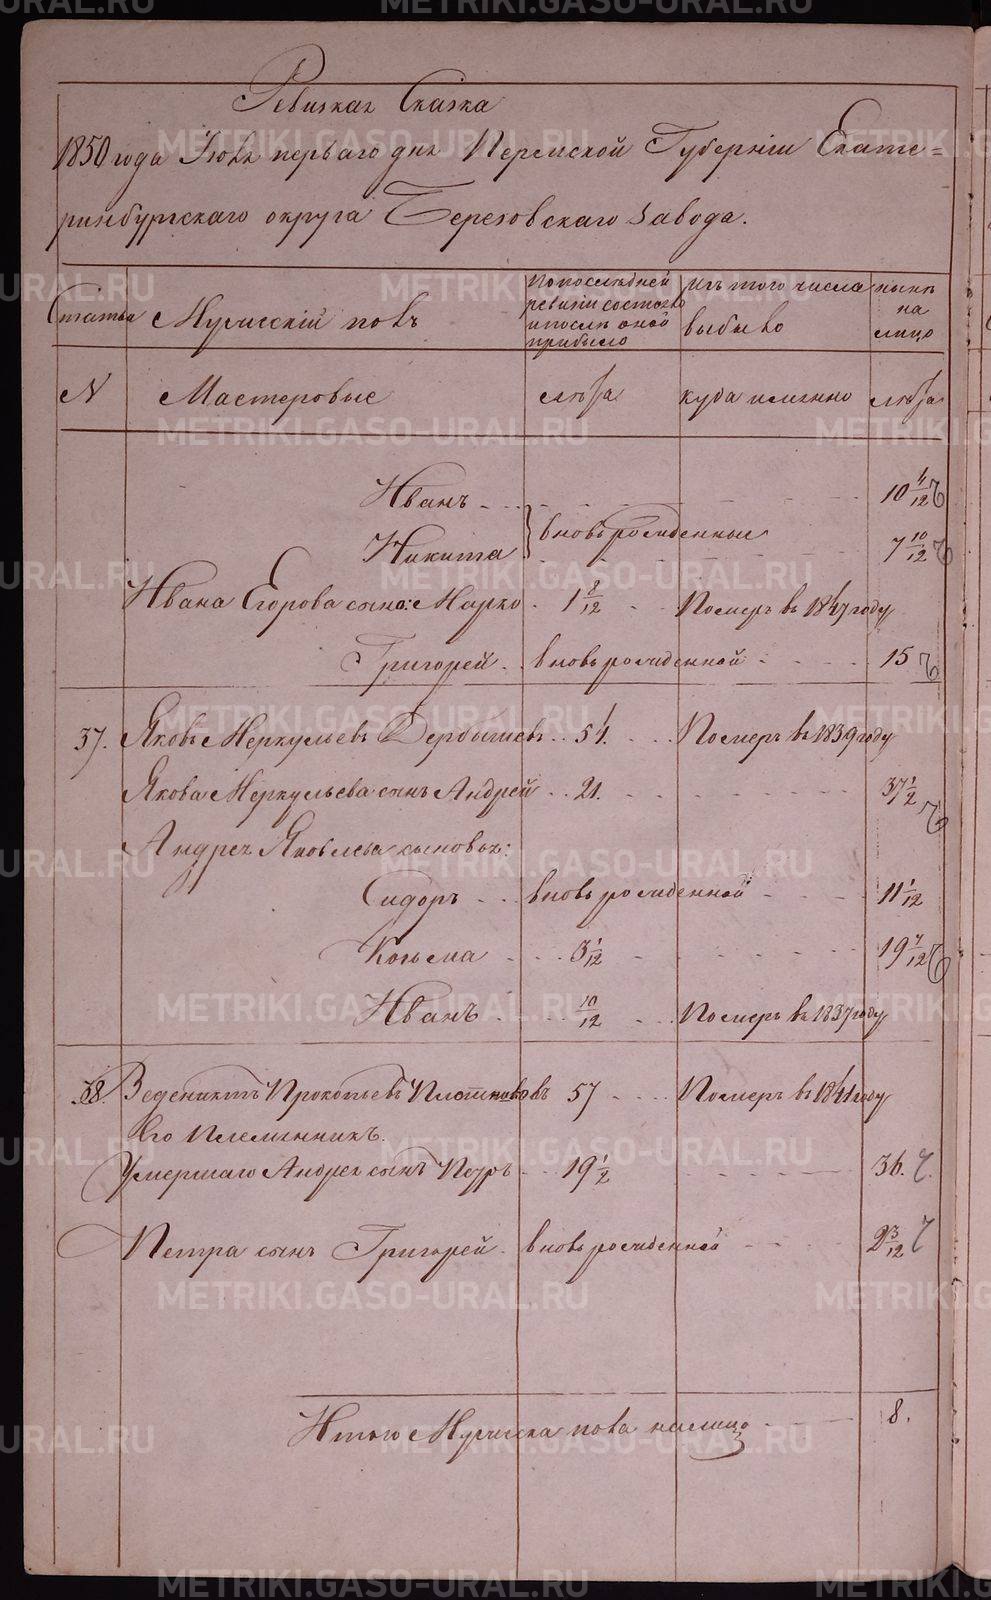 Ревизкая Сказка
1850 года Іюня перваго дня Пермской Губерніи Екате=
ринбургскаго округа Березовскаго завода.
Статья Мужескій полъ По последней ревизіи состояло и после оной прибыло Изъ того числа выбыло ныне на лицо
N Мастеровые лѣта куда именно лѣта
Иванъ 10 4/12
Никита вновь рожденные 7 10/12
Ивана Егорова сына: Марко 1 8/12 Померъ въ 1847 году
Григорей вновь рожденной 15
37. Яковъ Меркульевъ Дербышевъ 51. Померъ въ 1839 году
Якова Меркульева сынъ Андрей 21. 37 1/2
Андрея Яковлева сыновья:
Сидоръ вновь рожденной 11 1/12
Козьма 3 1/12 19 7/12
Иванъ 10/12 Померъ въ 1837 году
38. Веденихтъ Прокопьевъ Плотниковъ 57 Померъ въ 1841 году
Его племянникъ
Умершаго Андрея сынъ Петръ 19 1/2 36.
Петра сынъ Григорей вновь рожденной 2 3/12
Итого Мужеска пола налицо 8.
METRIKI.GASO-URAL.RU